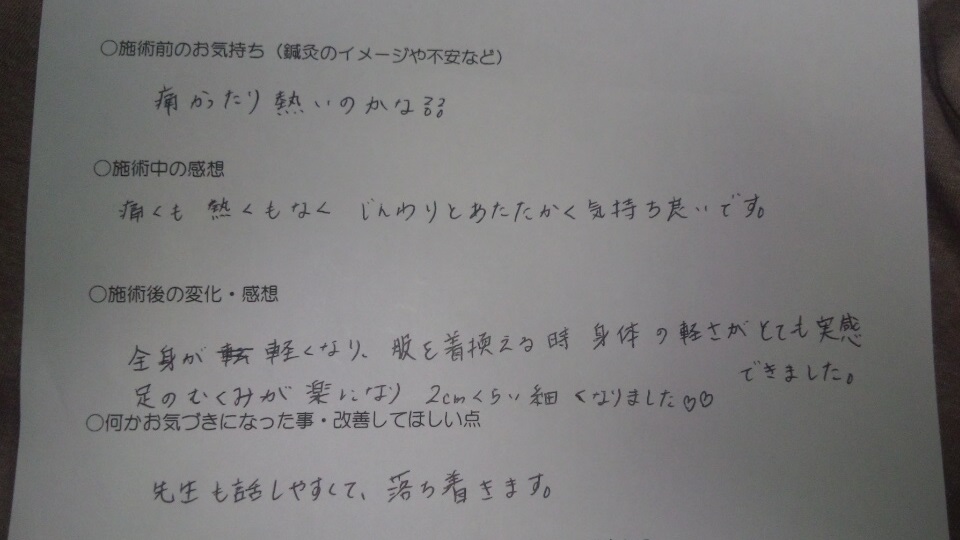 ○施術前のお気持ち(鍼灸のイメージや不安など)
痛かったり熱いのかな??
○施術中の感想
痛くも熱くもなくじんわりとあたたかく気持ち良いです。
○施術後の変化・感想
全身が軽くなり、服を着換える時身体の軽さがとても実感
できました。
足のむくみが楽になり2cmくらい細くなりました♡♡
○何かお気づきになった事・改善してほしい点
先生も話しやすくて、落ち着きます。